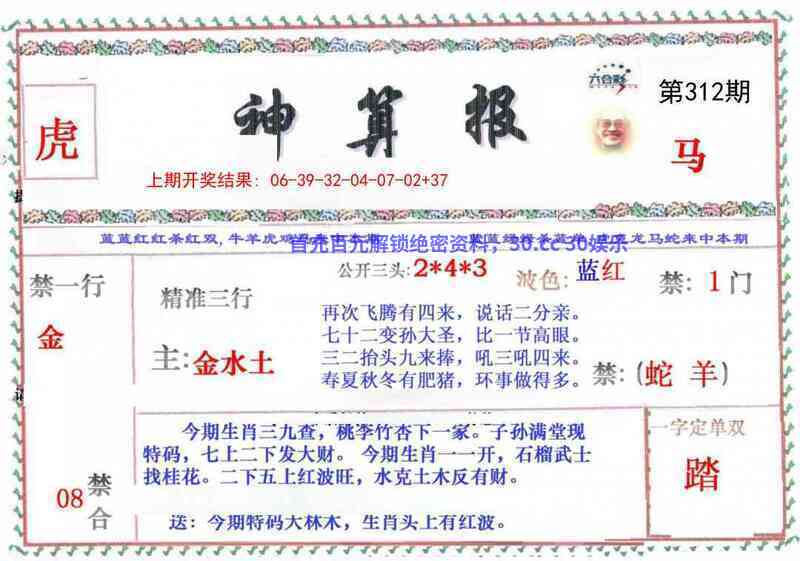 神算报
六合彩
第312期
虎
马
上期开奖结果: 06-39-32-04-07-02+37
蓝蓝红红条红双,牛羊虎
龙马蛇来中本期
首充百充解锁绝密资料,30.cc 30娱乐
公开三头:2*4*3
波色:蓝红
禁:1门
禁一行
金
精准三行
主:金水土
再次飞腾有四来,说话二分亲。
七十二变孙大圣,比一节高眼。
三二抬头九来捧,吼三吼四来。
春夏秋冬有肥猪,环事做得多。
禁:(蛇 羊)
今期生肖三九查,桃李竹杏下一家。子孙满堂现
特码,七上二下发大财。 今期生肖一一开,石榴武士
找桂花。二下五上红波旺,水克土木反有财。
送:今期特码大林木,生肖头上有红波。
08
禁合
一字定单双
踏